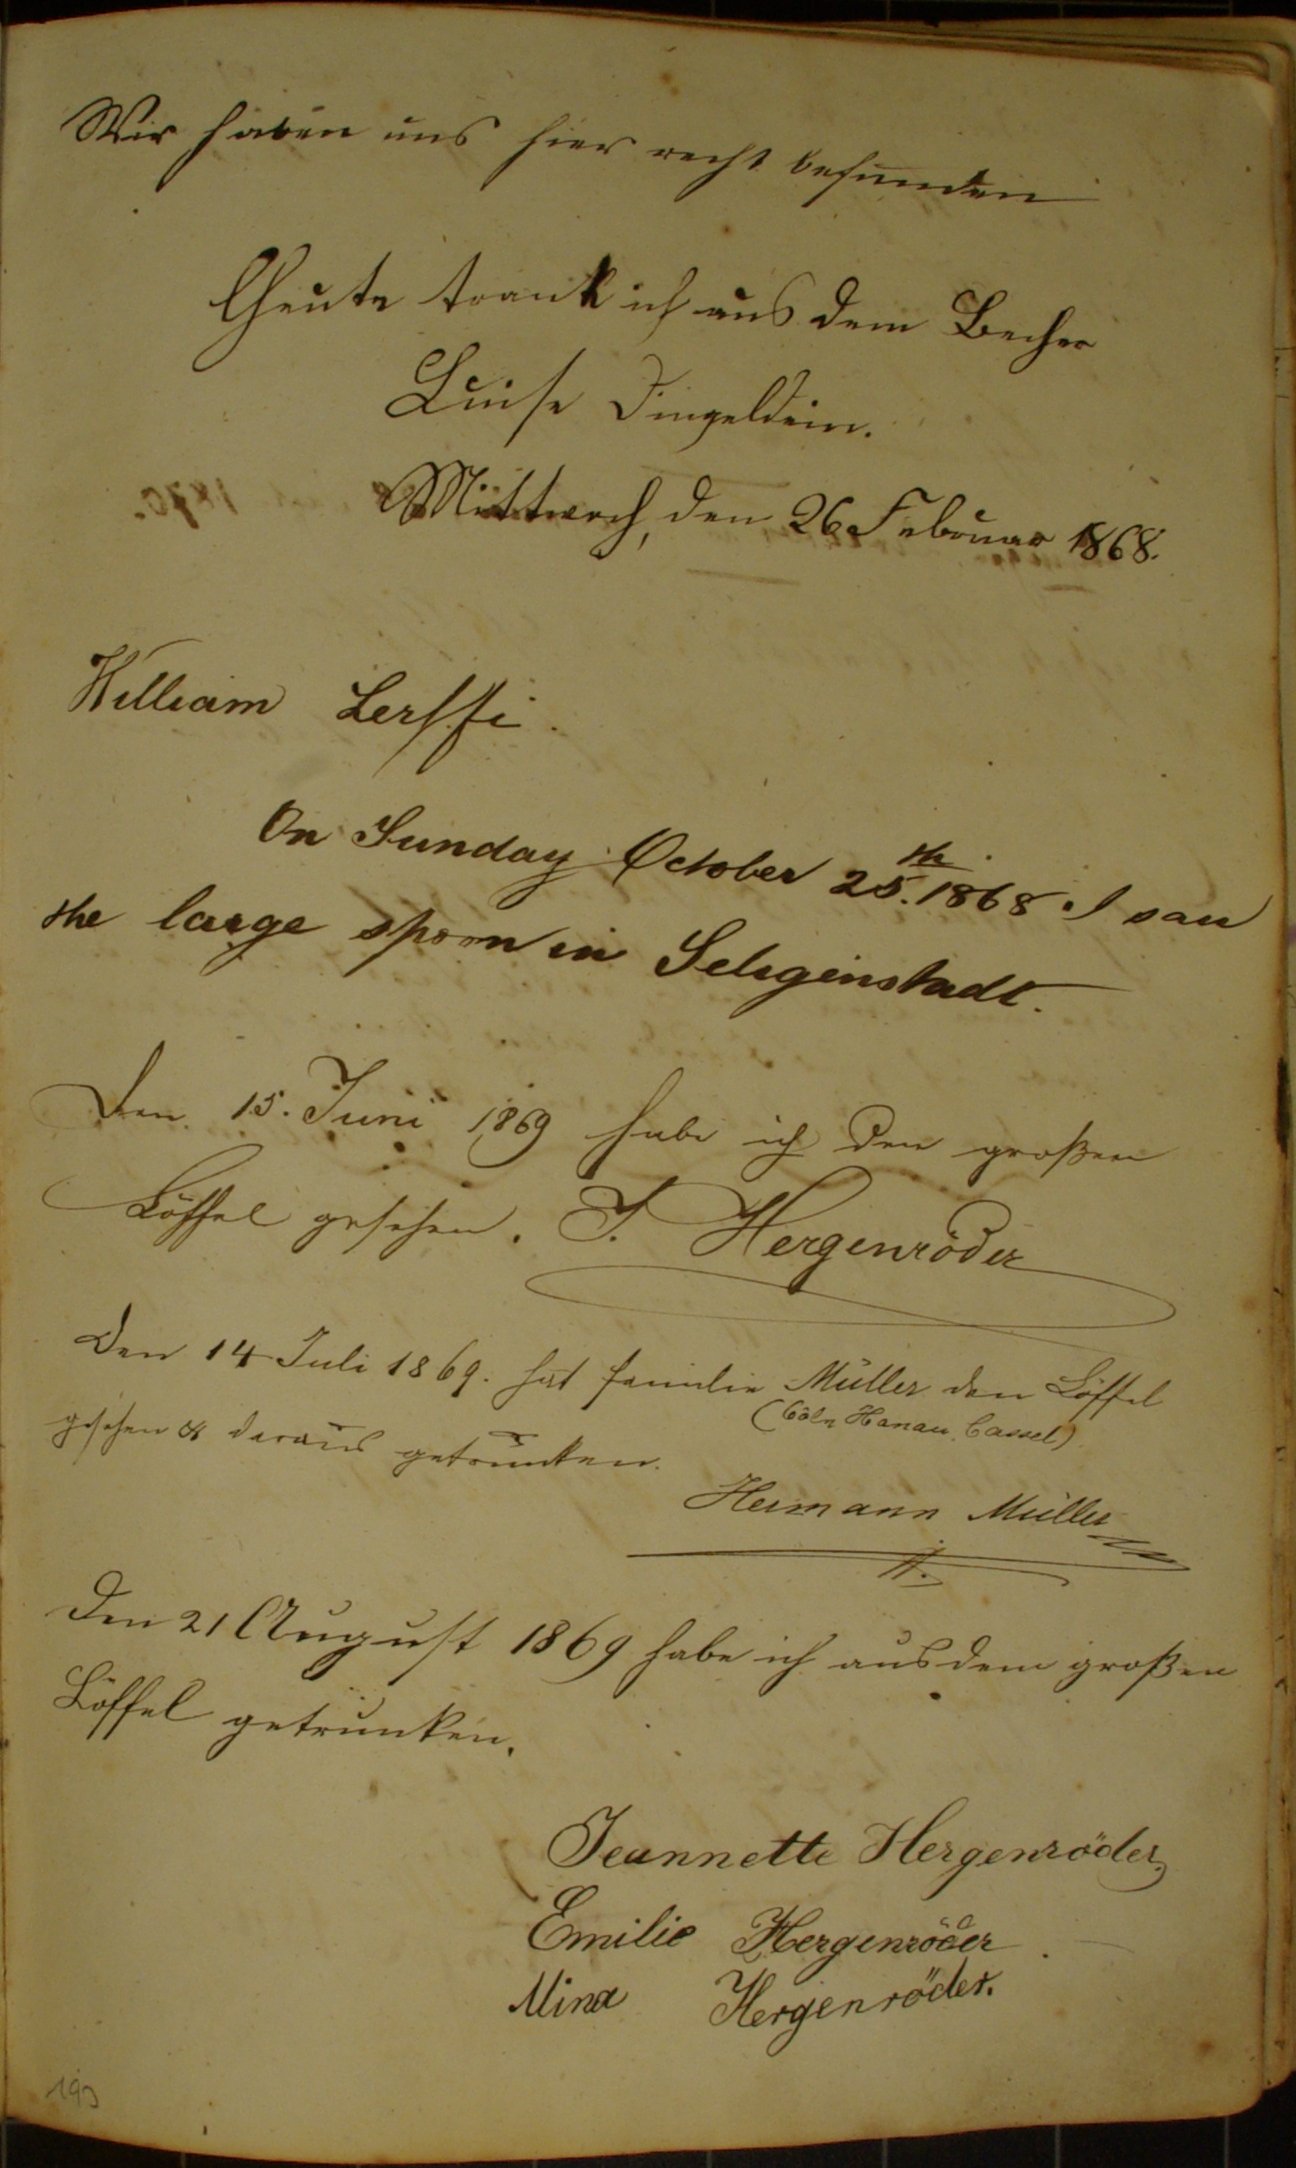 Wir haben uns hier recht befunden
Heute trank ich aus dem Becher
Luise Dingeldein.
Mittwoch, den 26 Februar 1868.
William
On Sunday October 25.th 1868 I saw
the large spoon in Seligenstadt.
Den 15. Juni 1869 habe ich den großen
Löffel gesehen. J. Hergenröder
Den 14 Juli 1869. hat Familie Müller den Löffel
(Cöln Hanau Cassel)
gesehen & daraus getrunken.
Hermann Müller
Den 21 August 1869 habe ich aus dem großen
Löffel getrunken.
Jeannette Hergenröder
Emilie Hergenröder
Mina Hergenröder.
193